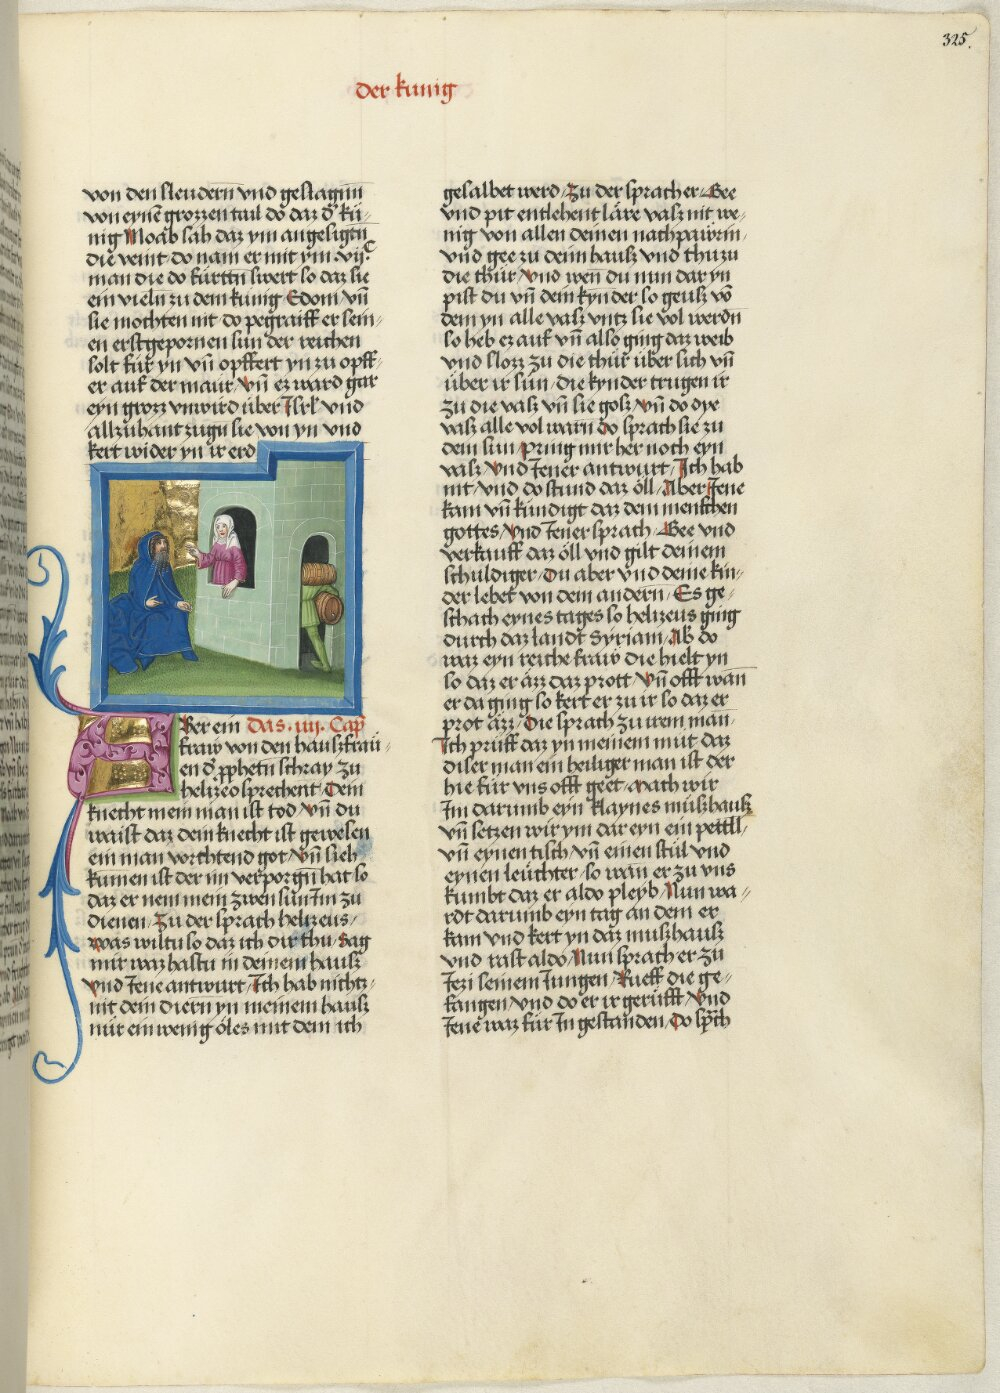 325.
der kunig
von den sleudern vnd geslagnn
von eynē grozzen tail do daz d' kü-
nig Moab sah daz ym angesigtn
die veint do nam er mit ym .vijc
man die do fürttn swert so daz sie
ein vieln zu dem kunig Edom vn̄
sie mochten nit do pegraiff er sein-
en erstgepornen sun der reichen
solt für yn vn̄ opffert yn zu opff-
er auf der maur vn̄ ez ward gar
eyn grozz vnwird über Isrl' vnd
allzuhant zugn sie von yn vnd
kert wider yn ir erd
Aber ein das .iiij. Cap
fraw von den hauszfrau-
en d' ꝓphetn schray zu
helizeo sprechent Dein
knecht mein man ist tod vn̄ du
waist daz dein knecht ist gewesen
ein man vorchtend got vn̄ sieh
kumen ist der im verporgn̄ hat so
daz er nem mein zwen sün Im zu
dienen Zu der sprach helizeus
was wiltu so daz ich dir thu Sag
mir waz hastu in deinem hausz
vnd Iene antwurt Ich hab nichtz
nit dein diern yn meinem hausz
nür ein wenig öles mit dem ich
gesalbet werd Zu der sprach er Gee
vnd pit entlehent läre vasz nit we-
nig von allen deinen nachpaürin
vnd gee zu deim hausz vnd thu zu
die thür vnd wen du nun dar yn
pist du vn̄ dein kynder so geusz vō
dem yn alle vasz vntz sie vol werdn
so heb ez auf vn̄ allso ging daz weib
vnd slozz zu die thür über sich vn̄
über ir sün die kynder trugen ir
zu die vasz vn̄ sie gosz vn̄ do dye
vasz alle vol warn do sprach sie zu
dem sun pring mir her noch eyn
vasz vnd Iener antwurt Ich hab
nit vnd do stund daz öll Aber Iene
kam vn̄ kündigt daz dem menschen
gottes vnd Iener sprach Gee vnd
verkauff daz öll vnd gilt deinem
schuldiger Du aber vnd deine kin-
der lebet von dem andern Es ge-
schach eynes tages so helizeus ging
durch daz landt Syriam Ab do
waz eyn reiche fraw die hielt yn
so daz er äzz daz prott vn̄ offt wan
er da ging so kert er zu ir so daz er
prot äzz Die sprach zu irem man
Ich prüff daz yn meinem mut daz
diser man ein heiliger man ist der
hie für vns offt geet mach wir
Im darumb eyn klaynes müszhausz
vn̄ setzen wir ym dar eyn ein pettll
vn̄ eynen tisch vn̄ einen stül vnd
eynen leüchter so wan er zu vns
kumbt daz er aldo pleyb Nun wa-
rdt darumb eyn tag an dem er
kam vnd kert yn daz muszhausz
vnd rast aldo Nun sprach er zu
Iezi seinem Iungen Rueff die ge-
fangen vnd do er ir gerüfft vnd
Iene waz für In gestanden Do sp̄ch